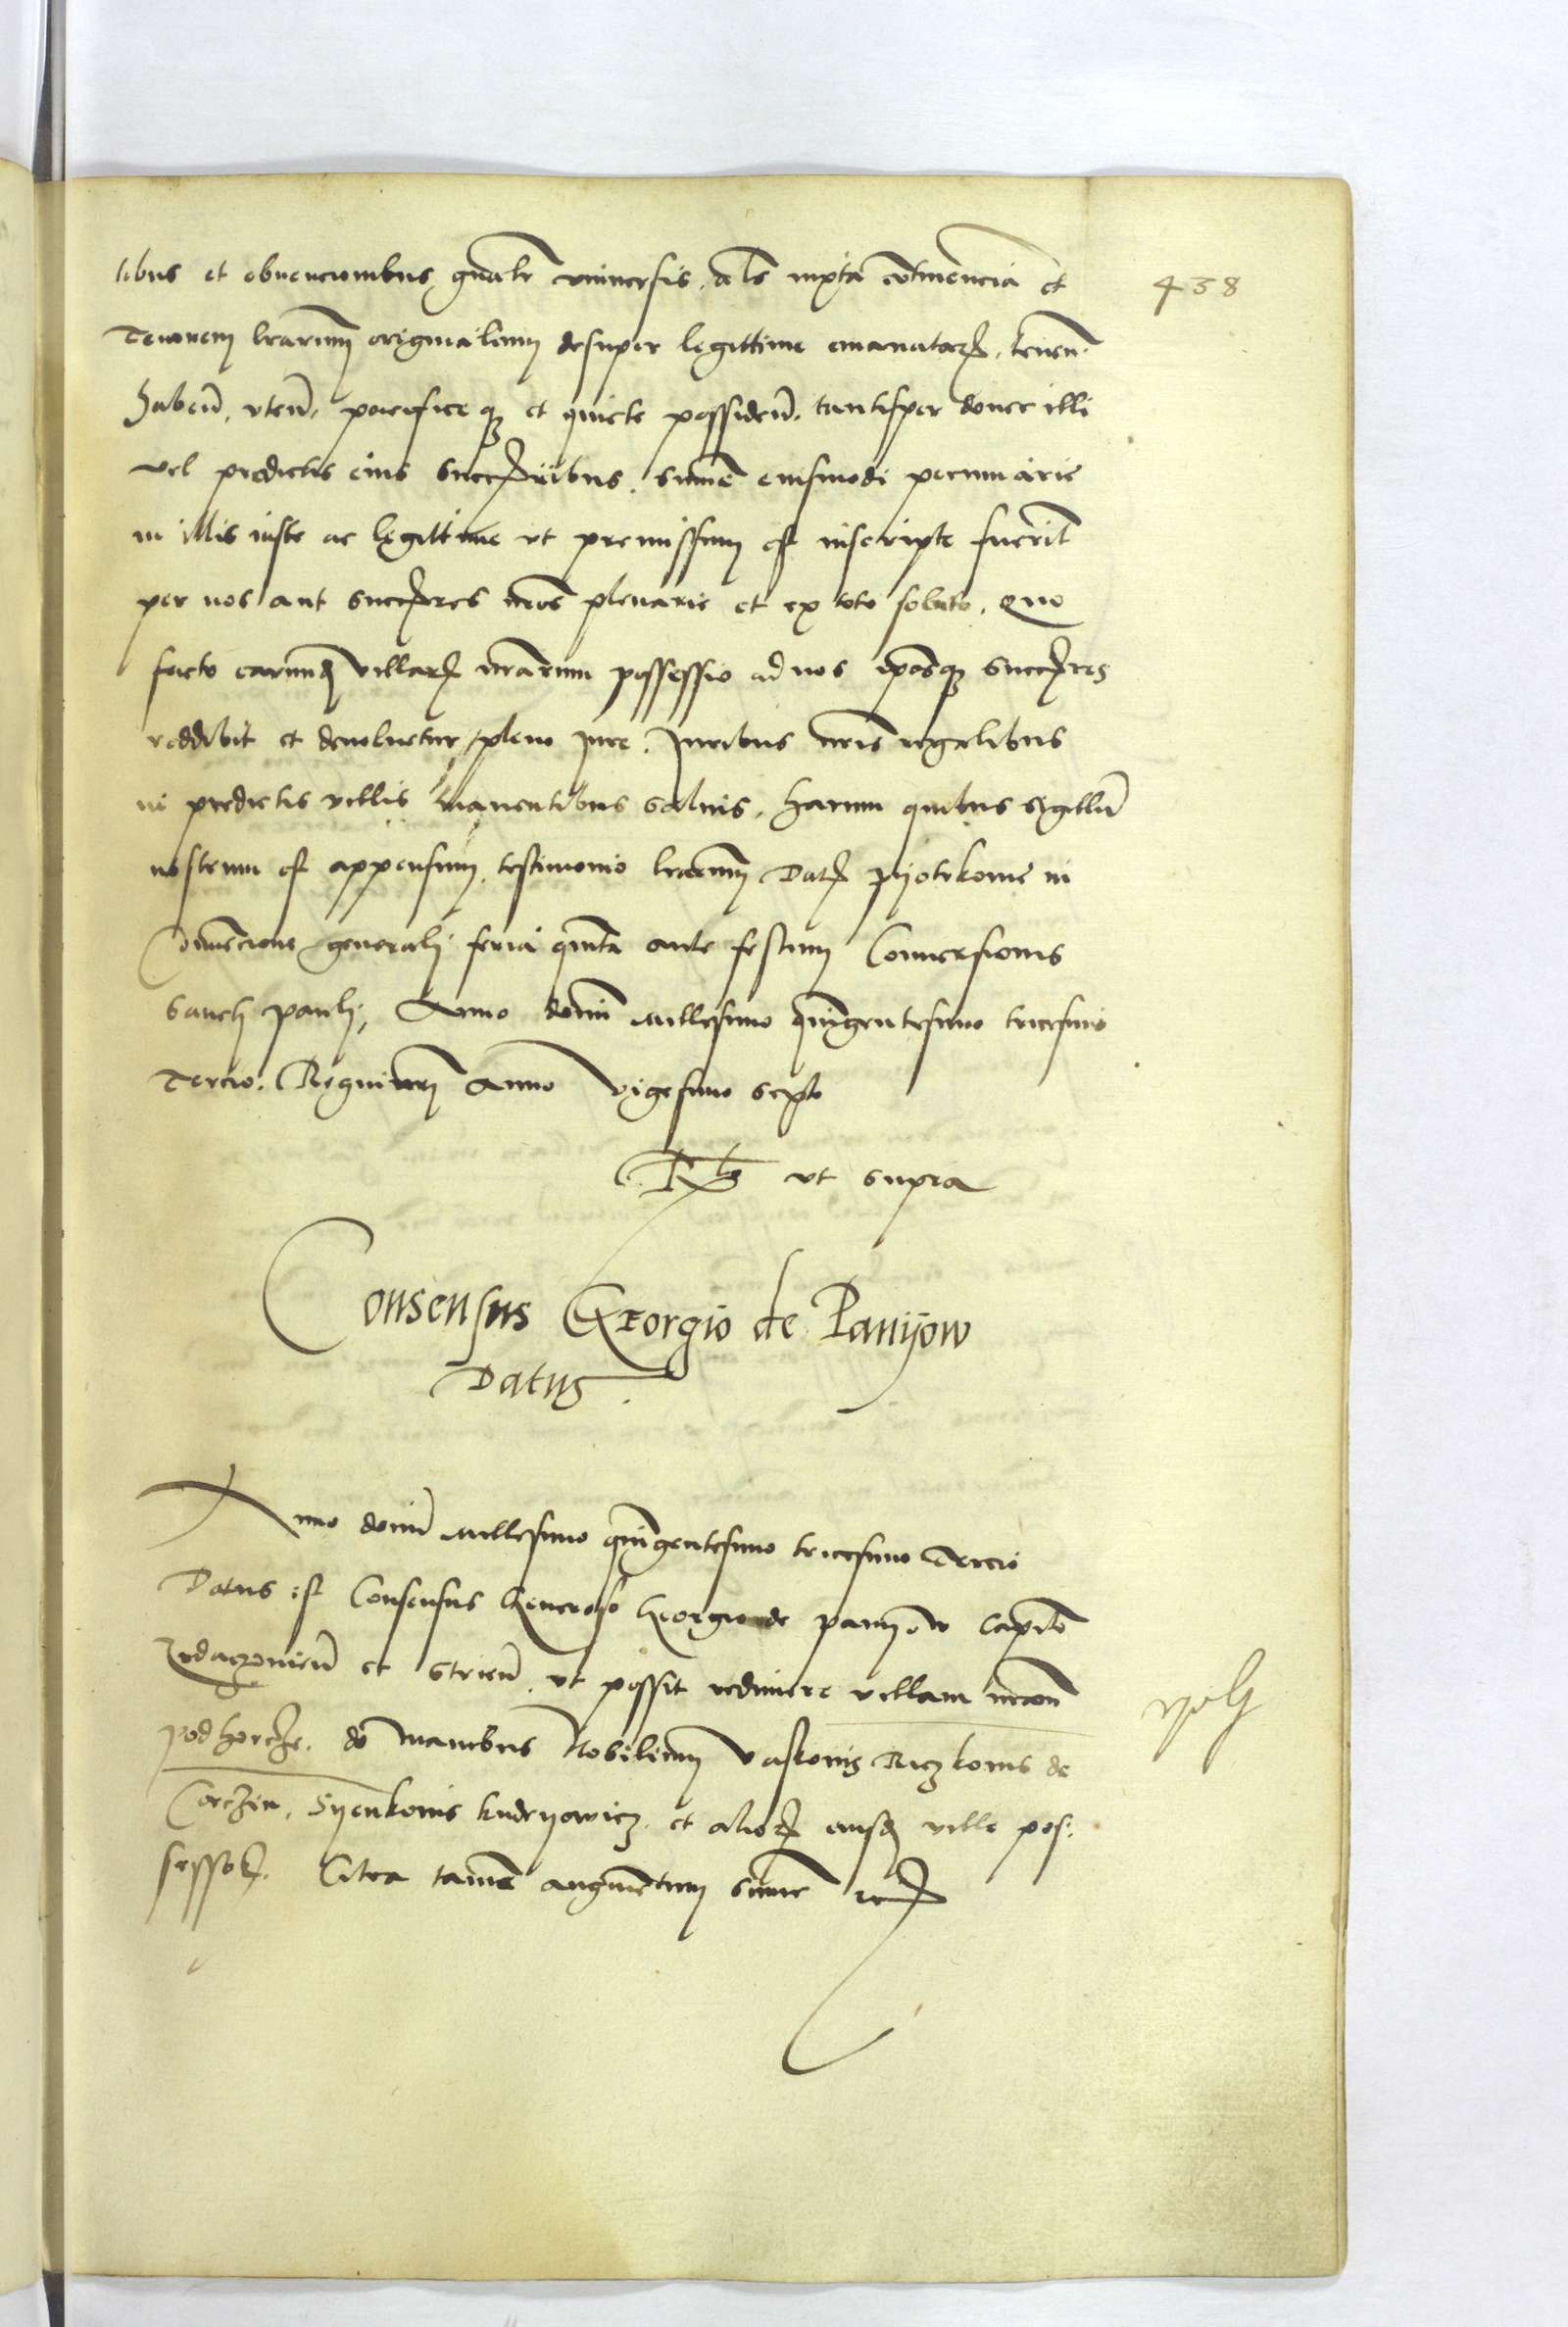 438
tibus et obvencionibus gnalr universis. als iuxta cotinencia et
Tenorem lrarum originalium desuper legittime emanatarz. tenen.
haben. uten. pacifice qz et quiete possiden. tantisper donec illi
vel predictis eius successoribus. summe eiusmodi pecuniarie
in illis iuste ac legittime ut premissum est inscripte fuerint
per nos aut successores nros plenarie et ex toto solute. Quo
facto earundem villarz nrarum possessio ad nos nrosqz successores
reddibit et devoluetur pleno iure. Iuribus nris regalibus
in predictis villis manentibus salvis. Harum quibus sigillu
nostrum est appensum testimonio lrarum. Datz Pyotrkowie in
Convencione generali feria quinta ante festum Conversionis
Sancti Pauli, Anno domini Millesimo quingentesimo tricesimo
Tercio. Regni nri Anno vigesimo septo
Rlo ut supra
Consensus Georgio de Paniyow
Datus.
Anno domini Millesimo quingentesimo tricesimo Tercio
Datus est Consensus Generoso Georgio de Paniyow Capito
Zydaczovien et Strien. ut possit redimere villam nram
Podhorcze. de manibus Nobilium Vaskonis Riczkonis de
Corczin, Syenkonis kudryowicz. et aliorz eiusdem ville pos:
sessorz. Citra tamen augmentum summe etc